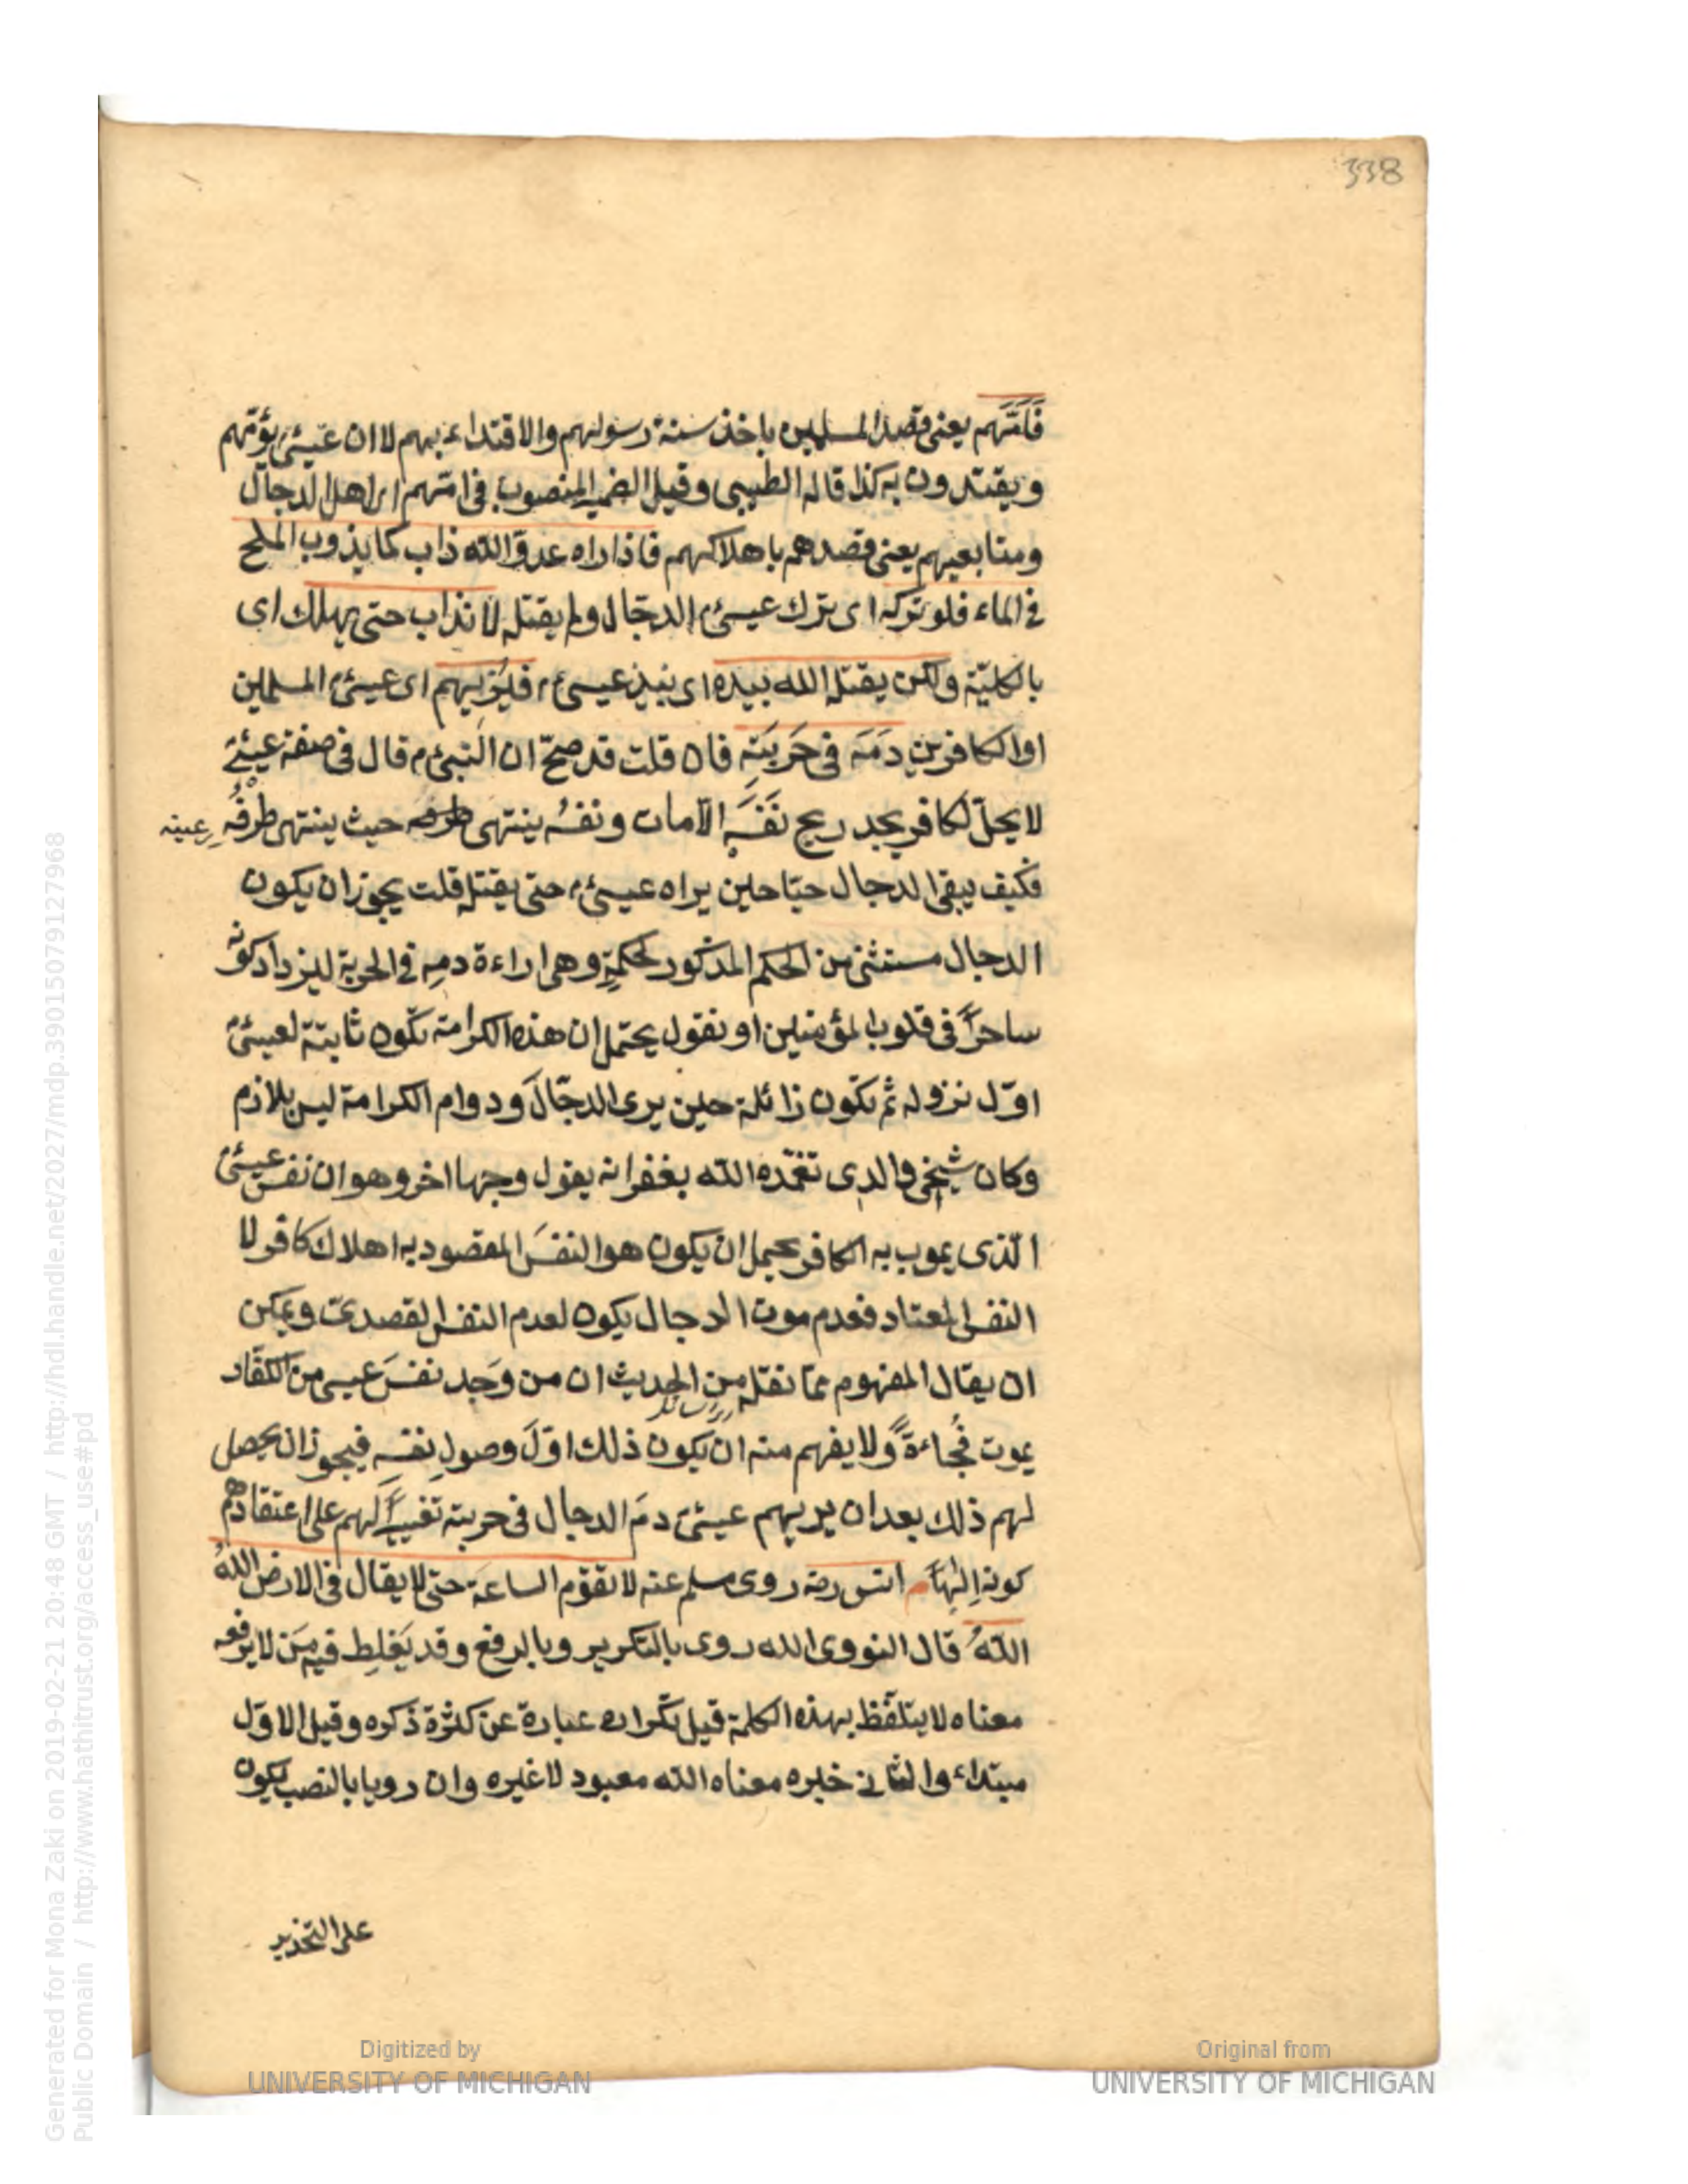 338
فَاَمَّهم يعنى قصد المسلمين باخذ سنة رسولهم والاقتداء بهم لا ان عيسىء يؤمّهم
ويقتدون به كذا قاله الطيبى وقيل الضمير المنصوب فى امّهم لاهل الدجال
ومتابعيهم يعنى قصدهم باهلاكهم فاذا راه عدوّ الله ذاب كما يذوب الملح
فى الماء فلو تركه اى ترك عيسىء الدجال ولم يقتله لانذاب حتى يهلك اى
بالكليّة ولكن يقتله الله بيده اى بيد عيسىء فيُرِيهم اى عيسىء المسلمين
او الكافرين دَمَه فى حَربَتِه فان قلت قد صحّ ان النبىء م قال فى صفة عيسىء
لا يحلّ لكافر يجد ريح نَفَسِه الا مات ونفسُه ينتهى حيث ينتهى طرفُه
عينه
فكيف يبقى الدجال حيّا حين يراه عيسىء حتى يقتله قلت يجوز ان يكون
الدجال مستثنى من الحكم المذكور لحكمةٍ وهى اراءة دمِه فى الحربة ليزداد كونه
ساحرًا فى قلوب المؤمنين او نقول يحتمل ان هذه الكرامة تكون ثابتة لعيسىء
اوّل نزوله ثم تكون زائلة حين يرى الدجّالَ ودوام الكرامة ليس بلازم
وكان شيخى والدى تغمّده الله بغفرانه يقول وجها اخر وهو ان نفس عيسىء
الّذى يموت به الكافر يحتمل ان يكون هو النفسَ المقصود به اهلاك كافر لا
النفس المعتاد فعدم موت الدجال يكون لعدم النفس القصدىّ ويمكن
ان يقال المفهوم ممّا نقل من الحديث ان من وَجد نفسَ عيسى من الكفّار
يموت فُجاءةً ولا يفهم منه ان يكون ذلك اوّلَ وصولِ نفسِه فيجوز ان يحصل
لهم ذلك بعد ان يريهم عيسىء دمَ الدجال فى حربته لهم على اعتقادهم
كونه اِلٰهًا م انس رضه روى مسلم عنه لا تقوم الساعة حتى لا يقال فى الارض اللهُ
اللهُ قال النووى الله روى بالتكرير وبالرفع وقد يَغلِط فيه مَن لا يرفعه
معناه لا يتلفّظ بهذه الكلمة قيل تكراره عبارة عن كثرة ذكره وقيل الاوّل
مبتداء والثانى خبره معناه الله معبود لا غيره وان رويا بالنصب يكون
على التحذير
Generated for Mona Zaki on 2019-02-21 20:48 GMT / http://hdl.handle.net/2027/mdp.39015079127968
Public Domain / http://www.hathitrust.org/access_use#pd
Digitized by
UNIVERSITY OF MICHIGAN
Original from
UNIVERSITY OF MICHIGAN